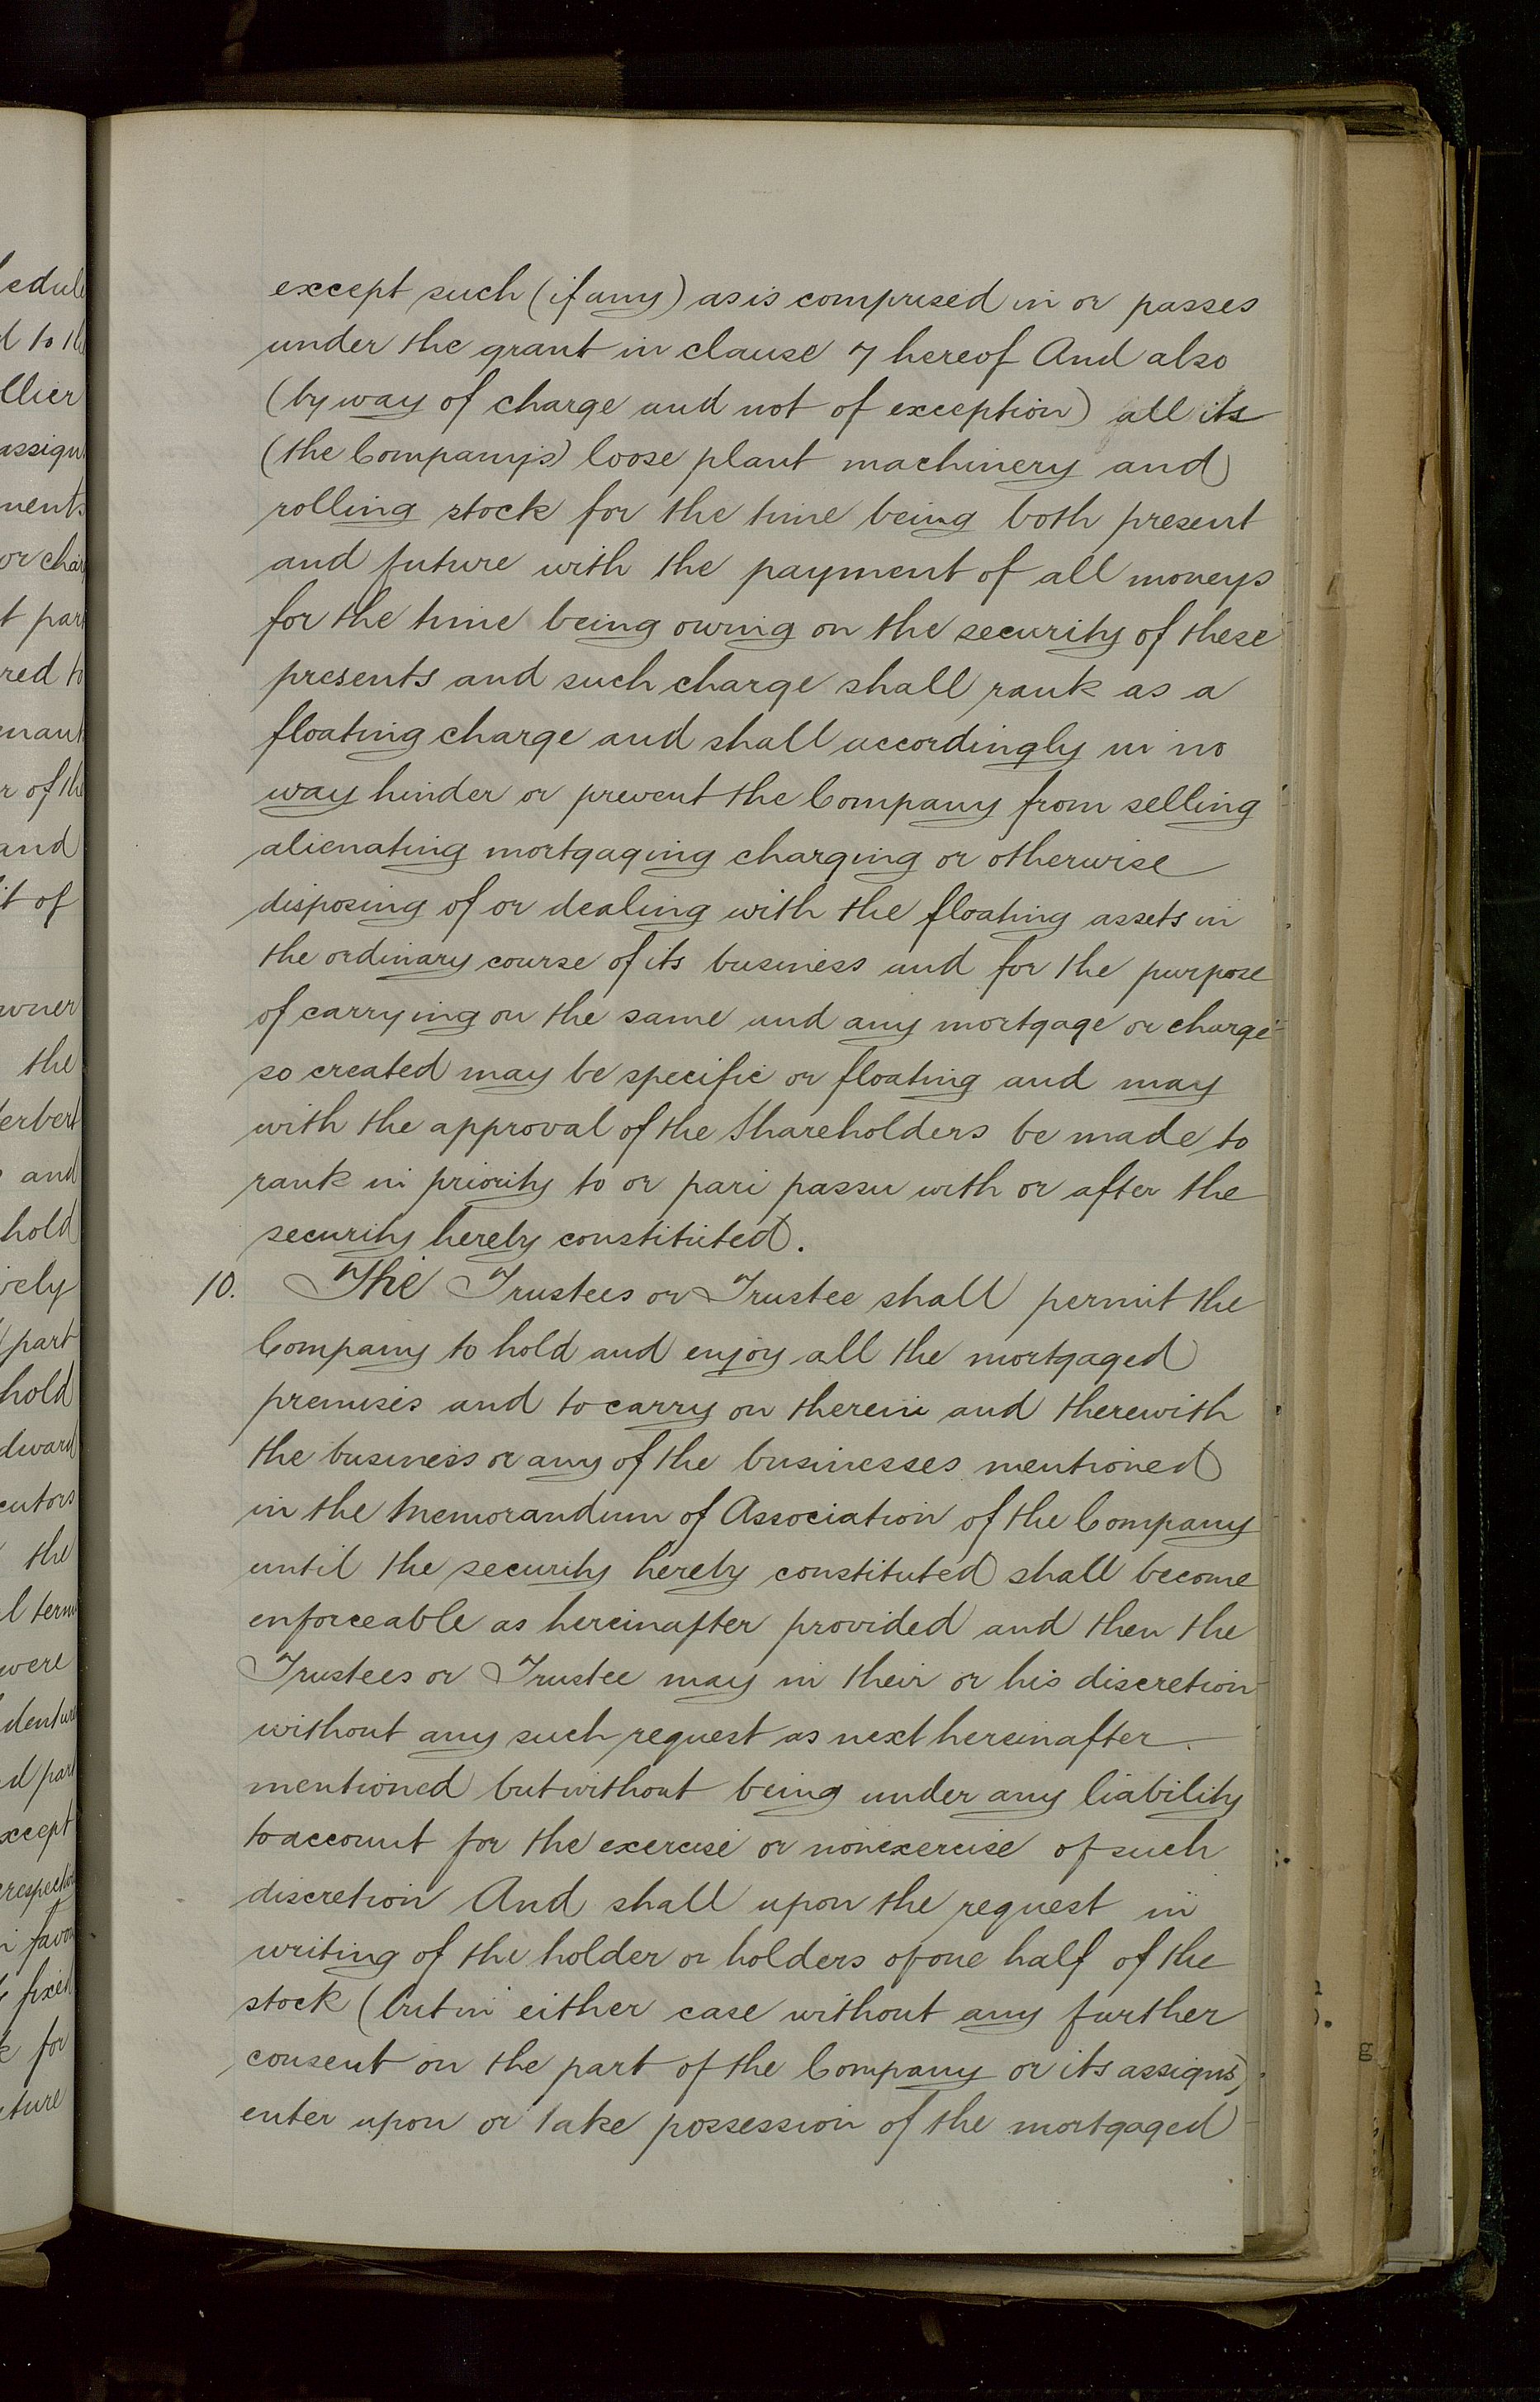 except such (if any) as is comprised in or passes
under the grant in clause 7 hereof And also
(by way of charge and not of exception) all its
(the Company's) loose plant machinery and
rolling stock for the time being both present
and future with the payment of all moneys
for the time being owing on the security of these
presents and such charge shall rank as a
floating charge and shall accordingly in no
way hinder or prevent the Company from selling
alienating mortgaging charging or otherwise
disposing of or dealing with the floating assets in
the ordinary course of its business and for the purpose
of carrying on the same and any mortgage or charge
so created may be specific or floating and may
with the approval of the Shareholders be made to
rank in priority to or pari passu with or after the
security hereby constituted.
10. The Trustees or Trustee shall permit the
Company to hold and enjoy all the mortgaged
premises and to carry on therein and therewith
the business or any of the businesses mentioned
in the Memorandum of Association of the Company
until the security hereby constituted shall become
enforceable as hereinafter provided and then the
Trustees or Trustee may in their or his discretion
without any such request as next hereinafter
mentioned but without being under any liability
to account for the exercise or nonexercise of such
discretion And shall upon the request in
writing of the holder or holders of one half of the
stock (but in either case without any further
consent on the part of the Company or its assigns)
enter upon or take possession of the mortgaged